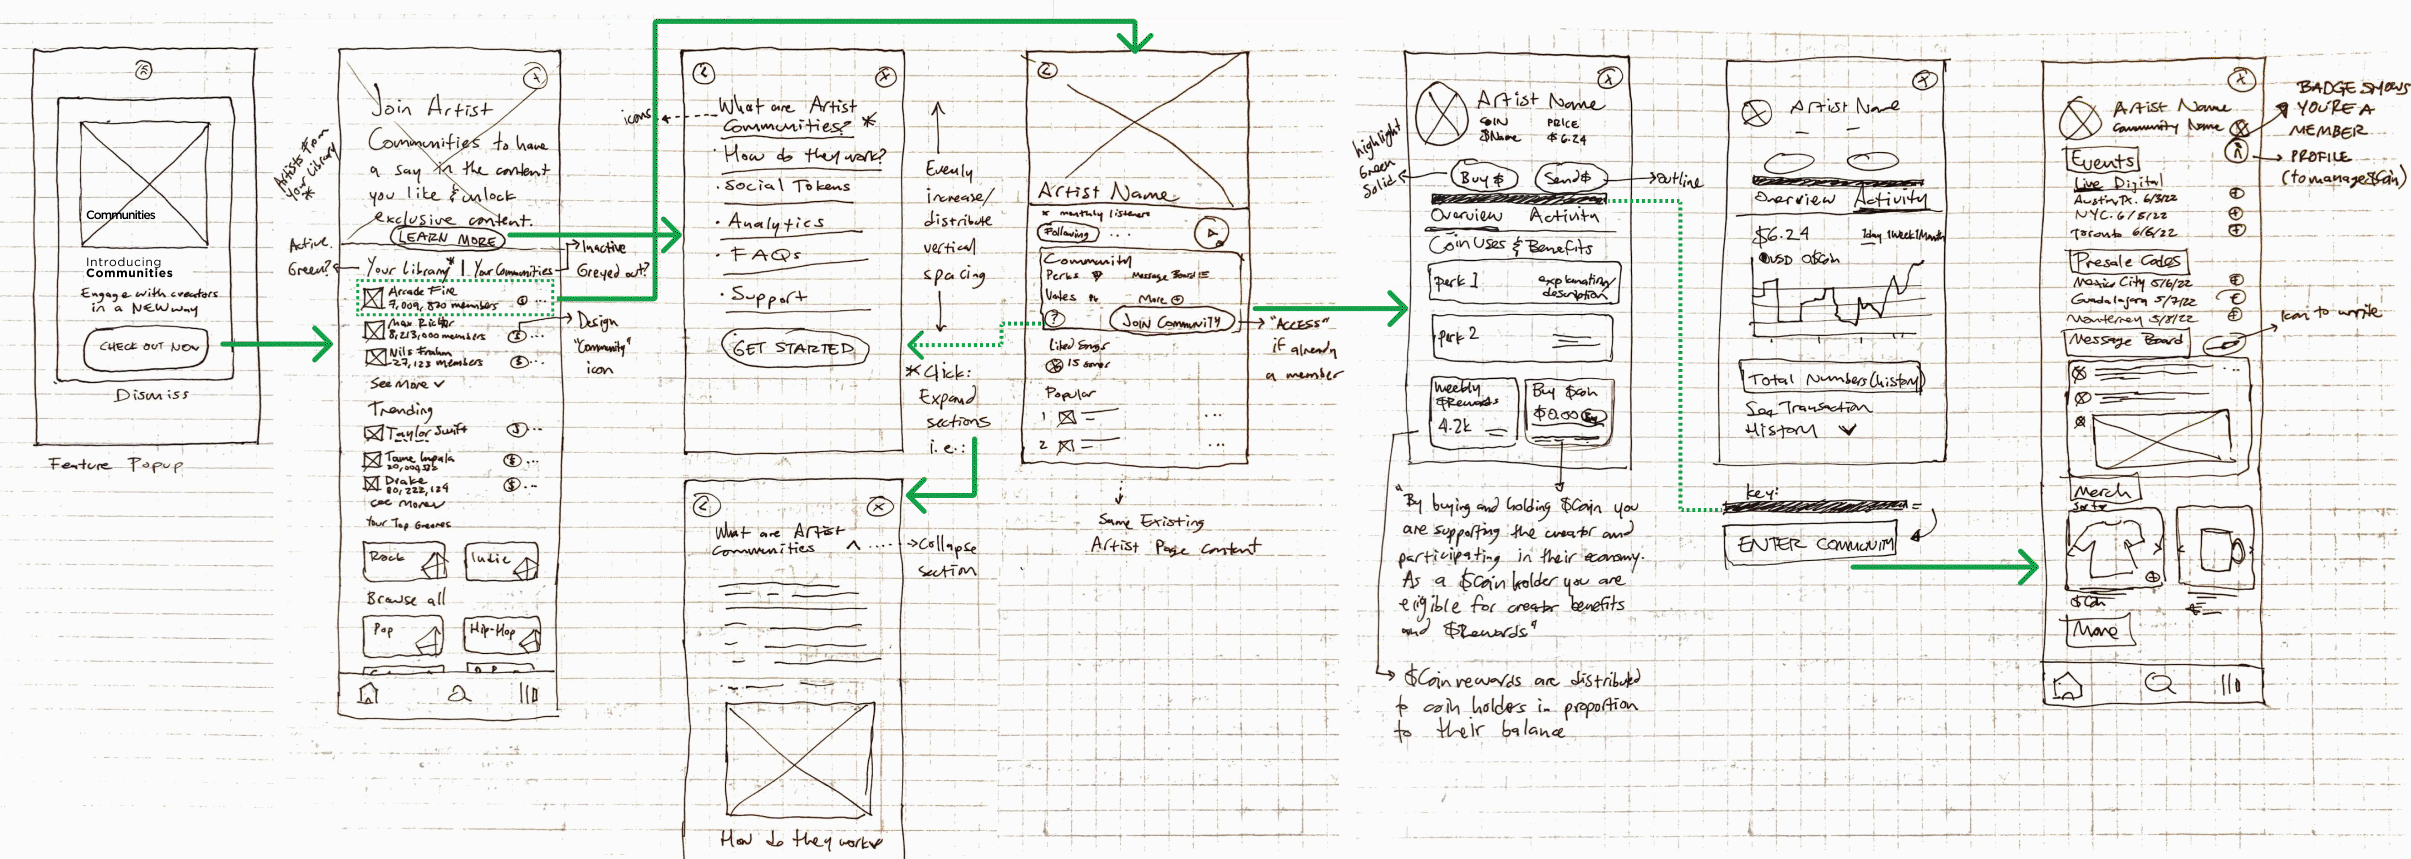 Communities
Introducing
Communities
Engage with creators
in a NEW way
CHECK OUT NOW
Dismiss
Feature Popup
Artists From
Your Library
*
Active.
Green?
Join Artist
Communities to have
a say in the content
you like & unlock
exclusive content.
LEARN MORE
Your Library* | Your Communities
Arcade Fire
7,009,820 members
Max Richter
8,213,000 members
Nils Frahm
27,123 members
See More
Trending
Taylor Swift
Tame Impala
Drake
80,222,124
See More
Your Top Genres
Rock
Indie
Browse all
Pop
Hip-Hop
Inactive
Greyed out?
Design
"Community"
icon
icons
What are Artist
Communities? *
How do they work?
Social Tokens
Analytics
FAQs
Support
GET STARTED
Evenly
increase/
distribute
vertical
spacing
* Click:
Expand
sections
i.e.:
What are Artist
Communities ^
Collapse
section
How do they work
Artist Name
* monthly listeners
Following
Community
Perks
Message Board
Votes
More
?
JOIN COMMUNITY
Liked Songs
Popular
1
2
"ACCESS"
if already
a member
Same Existing
Artist Page Content
highlight
Green
Solid
Artist Name
COIN PRICE
$Name $6.24
Buy $
Send $
Outline
Overview Activity
Coin Uses & Benefits
perk 1
explanation/
description
perk 2
Weekly
$Rewards
4.2k
Buy $Coin
$0.00
Buy
"By buying and holding $Coin you
are supporting the creator and
participating in their economy.
As a $Coin holder you are
eligible for creator benefits
and $Rewards"
$Coin rewards are distributed
to coin holders in proportion
to their balance
Artist Name
Overview Activity
$6.24
1day 1week 1Month
USD $Coin
Total Numbers (history)
See Transaction
History
key:
=
ENTER COMMUNITY
Artist Name
Community Name
Events
Live Digital
Austin Tx. 6/3/22
NYC. 6/5/22
Toronto 6/6/22
Presale Codes
Mexico City 5/6/22
Guadalajara 5/7/22
Monterrey 5/8/22
Message Board
Merch
$Coin
More
BADGE SHOWS
YOU'RE A
MEMBER
PROFILE
(to manage $Coin)
Icon to write